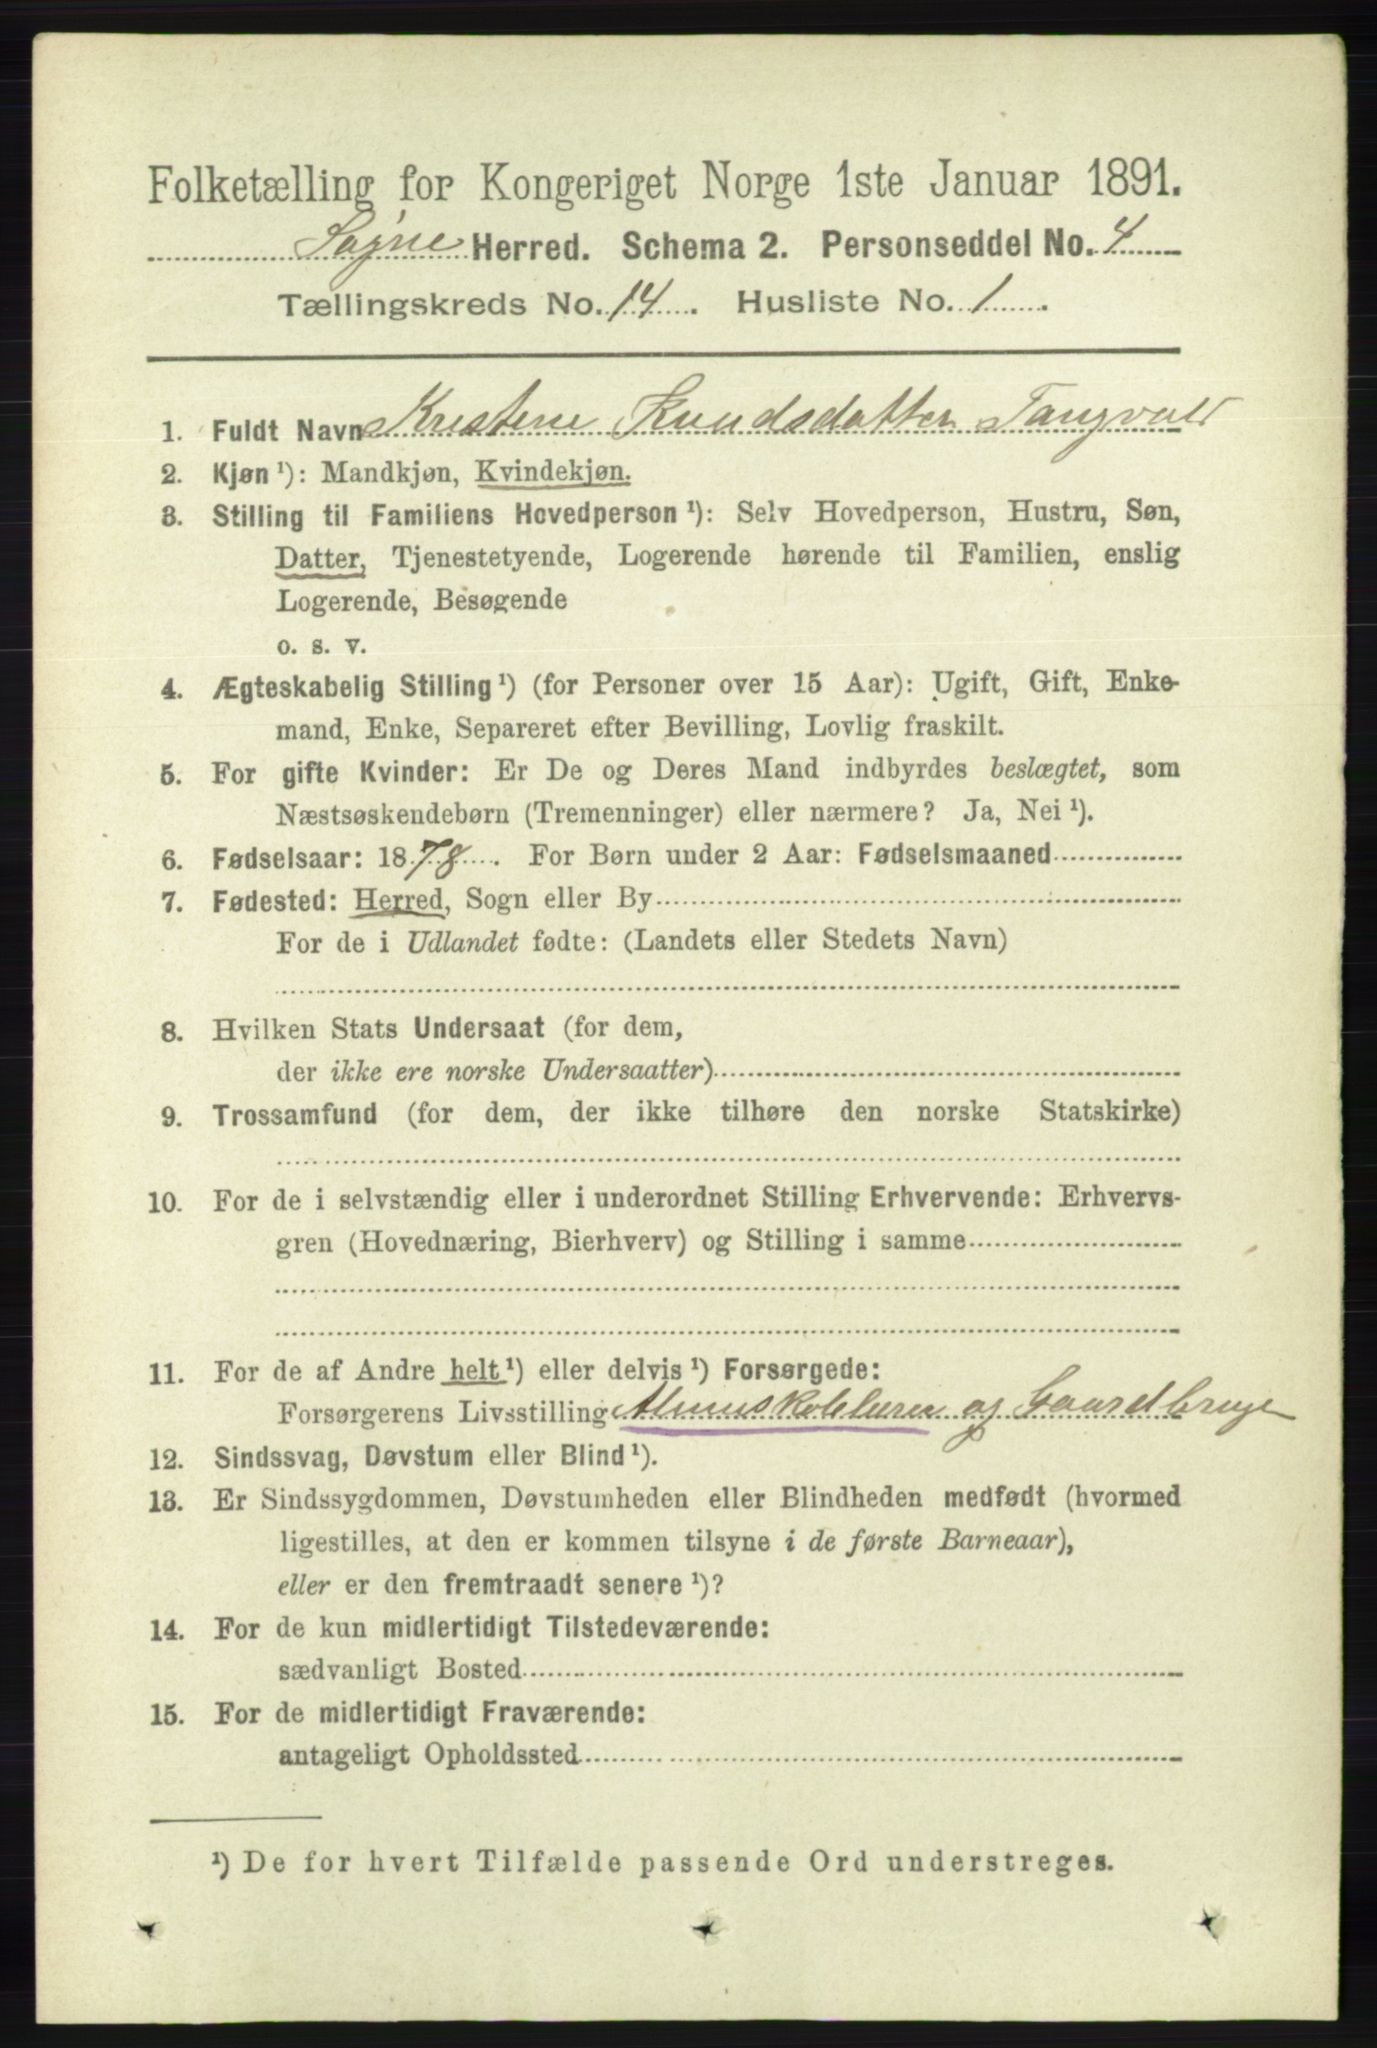 Folketælling for Kongeriget Norge 1ste Januar 1891.
Søgne Herred. Schema 2. Personseddel No. 4
Tællingskreds No. 14. Husliste No. 1.
1. Fuldt Navn Kristene Knudsdatter Tangvald
2. Kjøn ¹): Mandkjøn, Kvindekjøn.
3. Stilling til Familiens Hovedperson ¹): Selv Hovedperson, Hustru, Søn,
Datter, Tjenestetyende, Logerende hørende til Familien, enslig
Logerende, Besøgende
o. s. v.
4. Ægteskabelig Stilling ¹) (for Personer over 15 Aar): Ugift, Gift, Enke-
mand, Enke, Separeret efter Bevilling, Lovlig fraskilt.
5. For gifte Kvinder: Er De og Deres Mand indbyrdes beslægtet, som
Næstsøskendebørn (Tremenninger) eller nærmere? Ja, Nei ¹).
6. Fødselsaar: 1878. For Børn under 2 Aar: Fødselsmaaned
7. Fødested: Herred, Sogn eller By
For de i Udlandet fødte: (Landets eller Stedets Navn)
8. Hvilken Stats Undersaat (for dem,
der ikke ere norske Undersaatter)
9. Trossamfund (for dem, der ikke tilhøre den norske Statskirke)
10. For de i selvstændig eller i underordnet Stilling Erhvervende: Erhvervs-
gren (Hovednæring, Bierhverv) og Stilling i samme
11. For de af Andre helt ¹) eller delvis ¹) Forsørgede:
Forsørgerens Livsstilling og Gaardbruger
12. Sindssvag, Døvstum eller Blind ¹).
13. Er Sindssygdommen, Døvstumheden eller Blindheden medfødt (hvormed
ligestilles, at den er kommen tilsyne i de første Barneaar),
eller er den fremtraadt senere ¹)?
14. For de kun midlertidigt Tilstedeværende:
sædvanligt Bosted
15. For de midlertidigt Fraværende:
antageligt Opholdssted
¹) De for hvert Tilfælde passende Ord understreges.